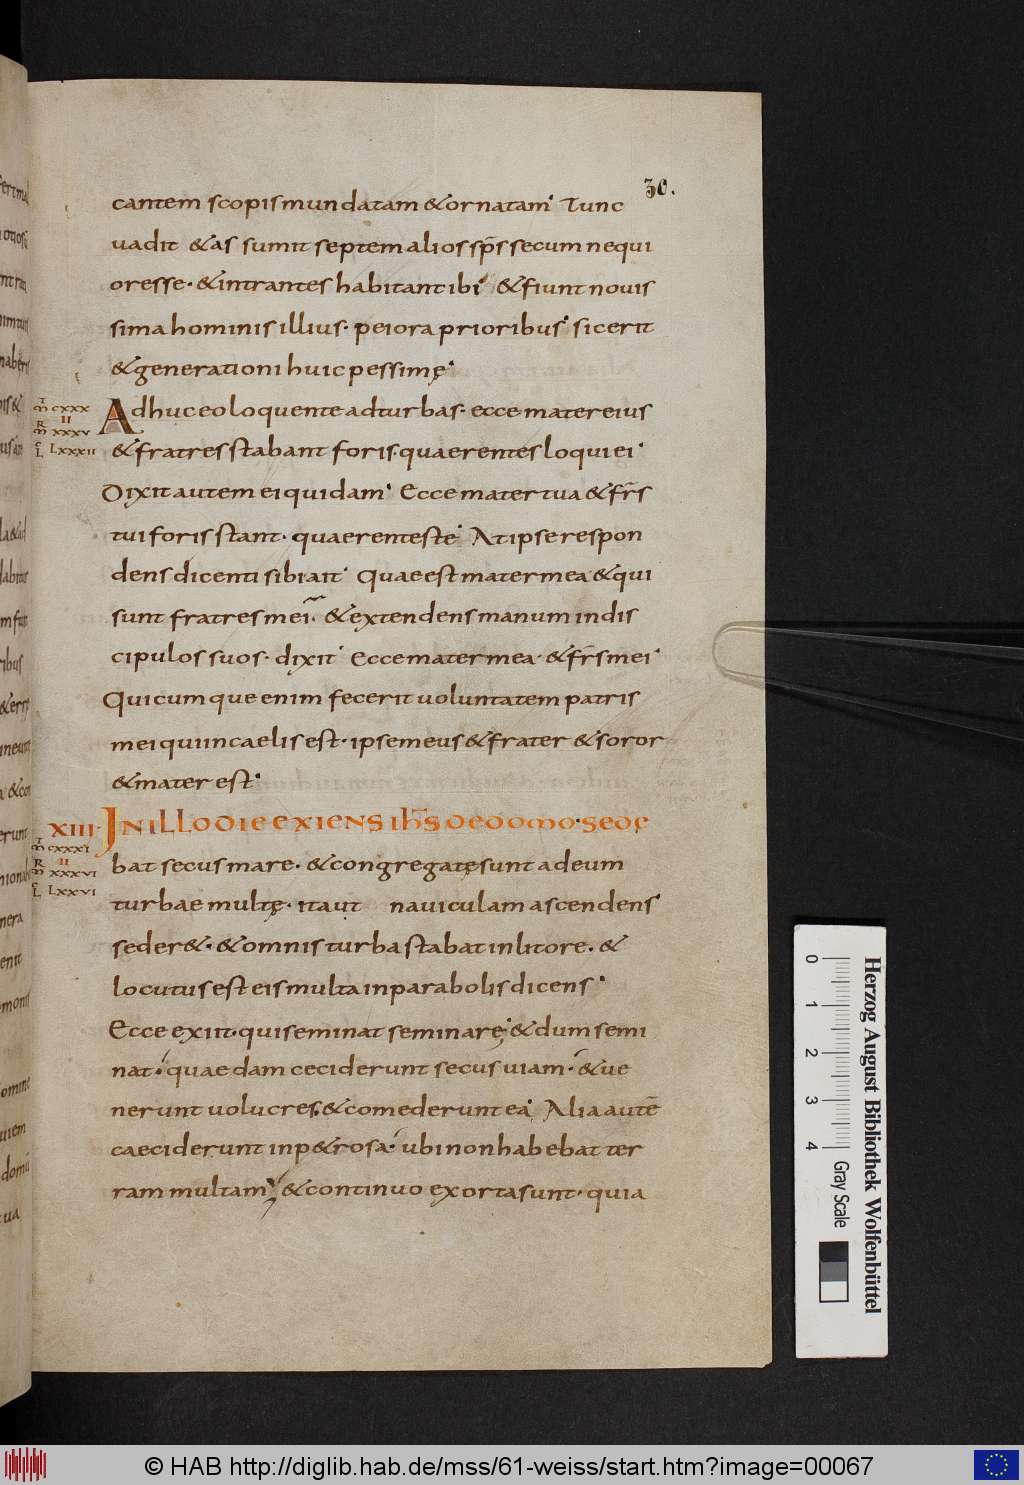 30.
cantem scopis mundatam & ornatam. Tunc
uadit & assumit septem alios sp̄s secum nequi
oresse. & intrantes habitant ibi. & fiunt nouis
sima hominis illius. peiora prioribus. sic erit
& generationi huic pessimę.
Adhuc eo loquente ad turbas. ecce mater eius
& fratres stabant foris. quaerentes loqui ei.
Dixit autem ei quidam. Ecce mater tua & fr̄s
tui foris stant. quaerentes te. At ipse respon
dens dicenti sibi ait. Quae est mater mea & qui
sunt fratres mei. & extendens manum in dis
cipulos suos. dixit. Ecce mater mea. & fr̄s mei.
Quicumque enim fecerit uoluntatem patris
mei qui in caelis est. ipse meus & frater & soror
& mater est.
XIII. IN ILLO DIE EXIENS IHS̄ DE DOMO. SEDE
bat secus mare. & congregatę sunt ad eum
turbae multę. ita ut nauiculam ascendens
seder&. & omnis turba stabat in litore. &
locutus est eis multa in parabolis dicens.
Ecce exiit. qui seminat seminare. & dum semi
nat. quaedam ceciderunt secus uiam. & ue
nerunt uolucres. & comederunt ea. Alia autē
caeciderunt in p&rosa. ubi non habebat ter
ram multam. & continuo exorta sunt. quia
T
M CXXX
II
R
M XXXV
C
L LXXXII
T
M CXXXI
II
R
M XXXVI
C
L LXXVI
0 1 2 3 4
Gray Scale
Herzog August Bibliothek Wolfenbüttel
© HAB http://diglib.hab.de/mss/61-weiss/start.htm?image=00067